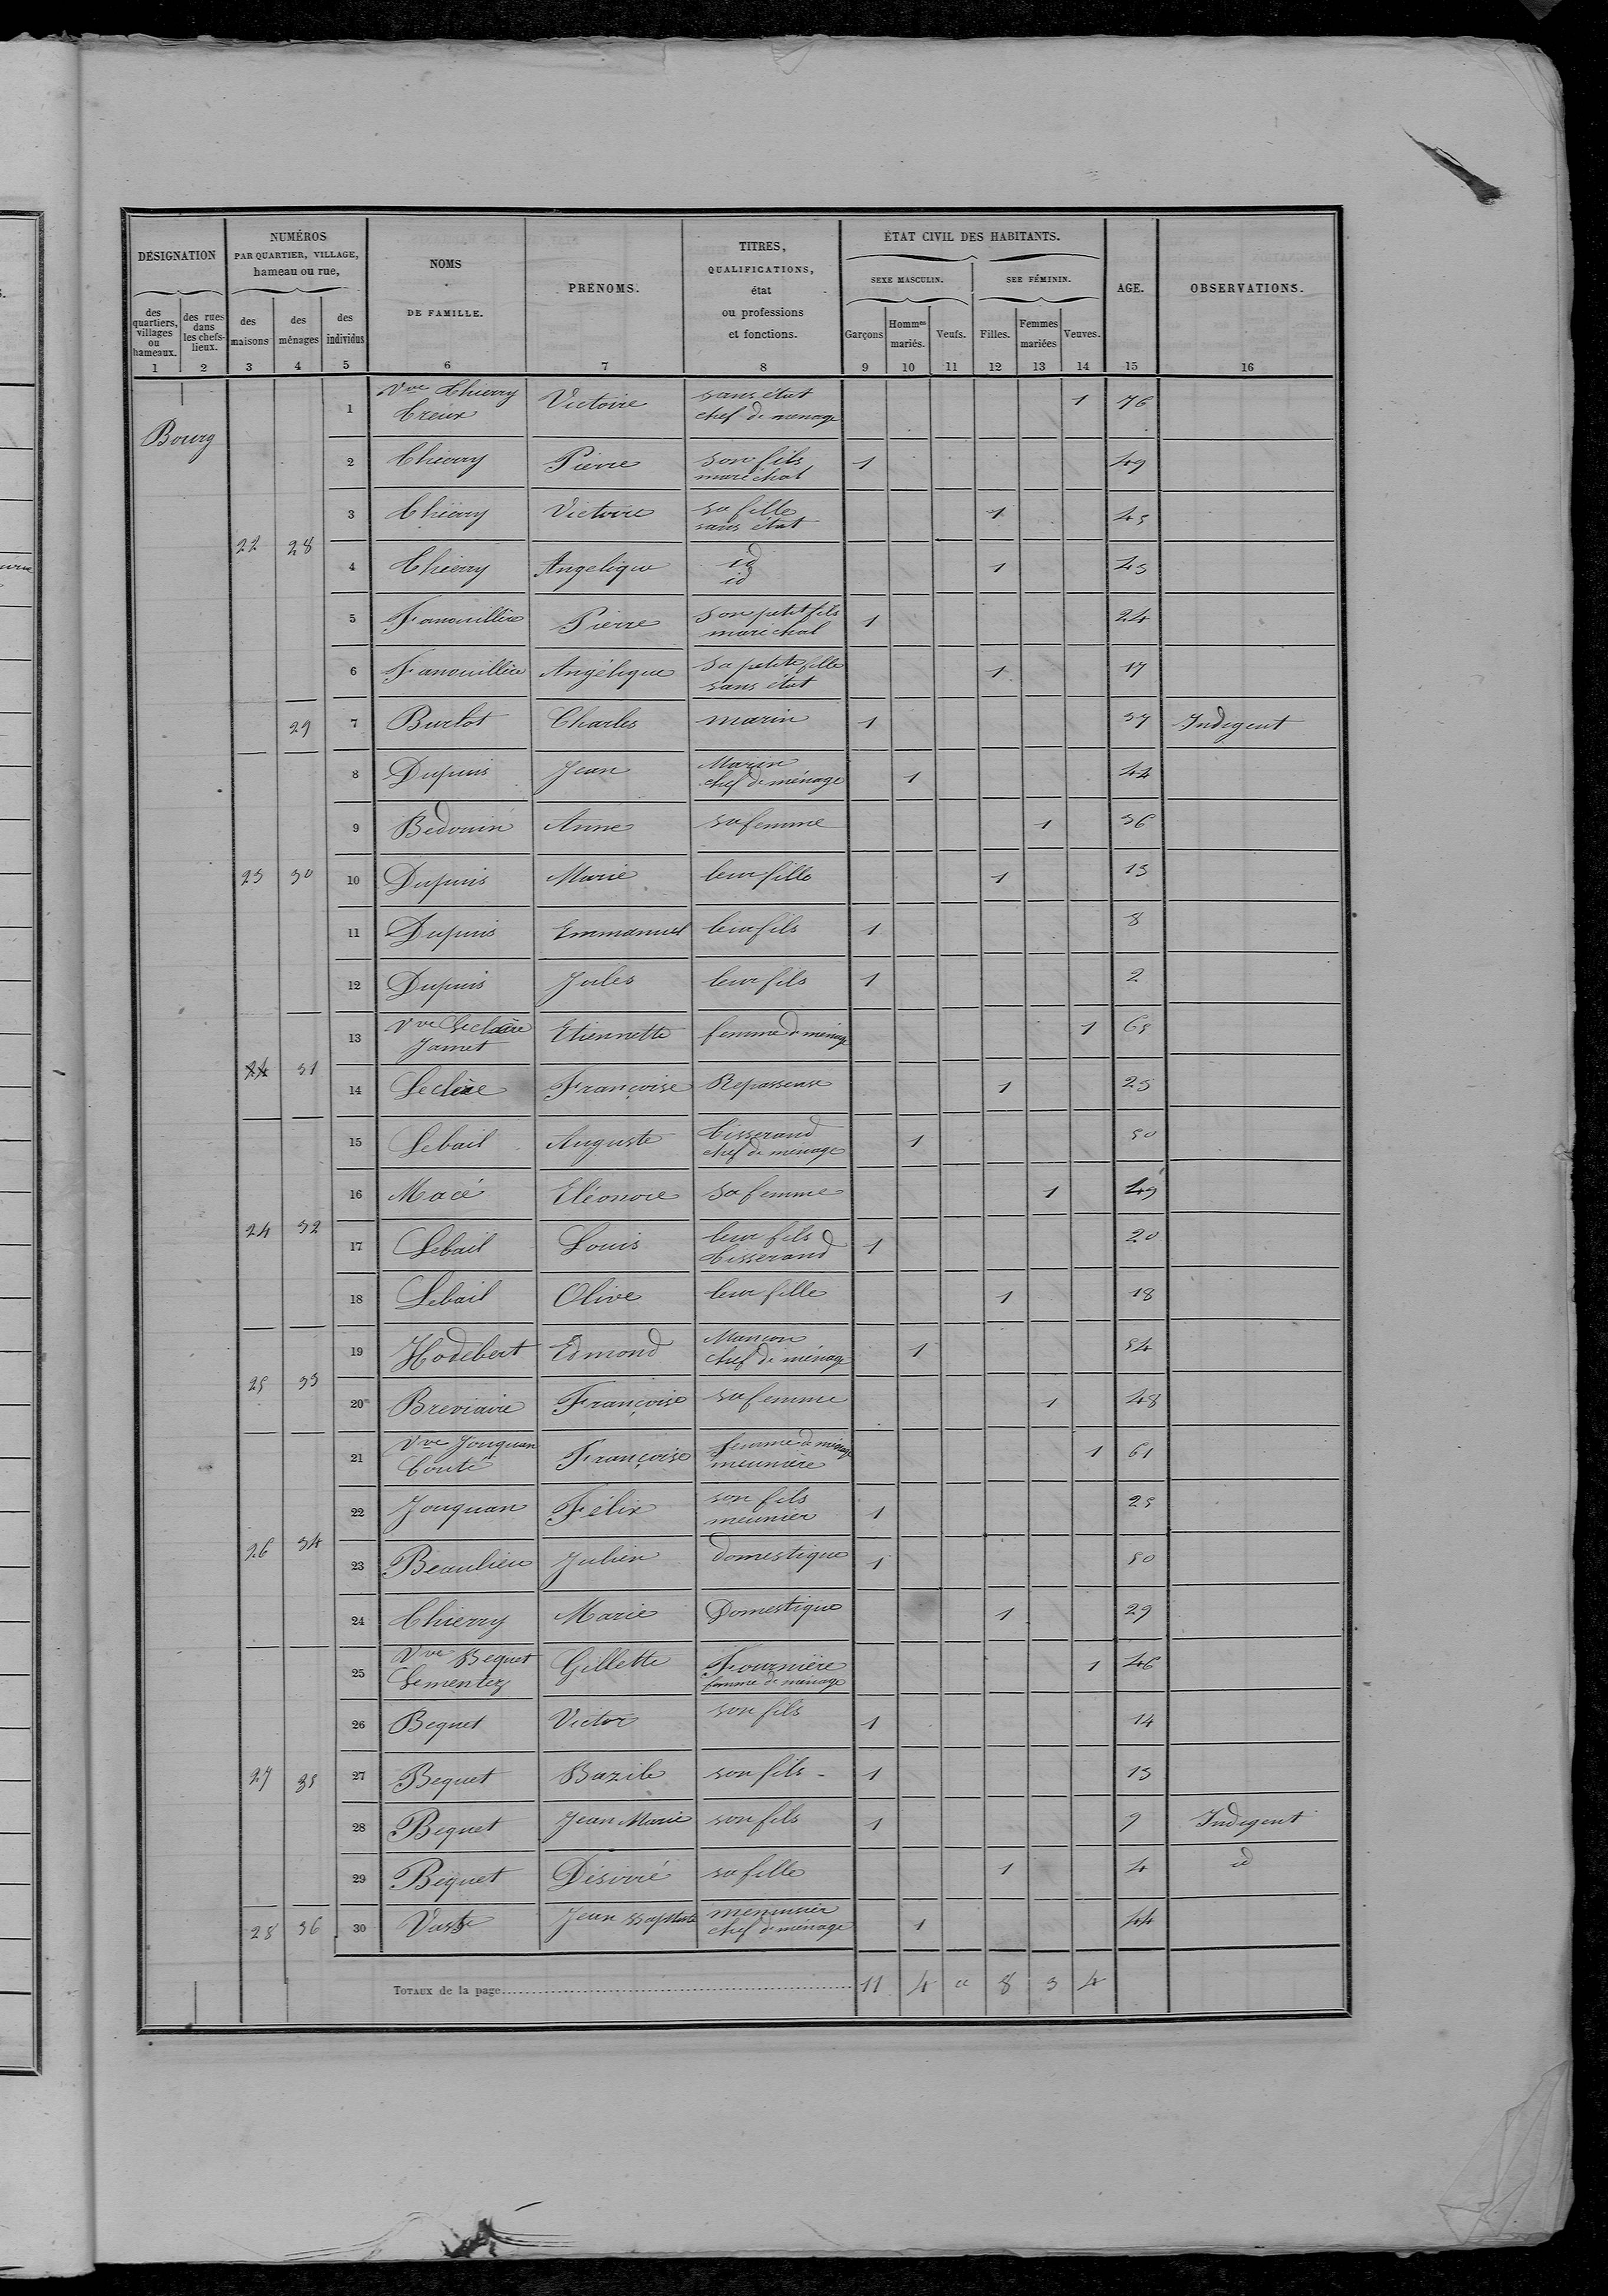 DÉSIGNATION
NUMÉROS
PAR QUARTIER, VILLAGE,
hameau ou rue,
NOMS
DE FAMILLE.
PRÉNOMS.
TITRES,
QUALIFICATIONS,
état
ou professions
et fonctions.
ÉTAT CIVIL DES HABITANTS.
SEXE MASCULIN.
SEE FÉMININ.
AGE.
OBSERVATIONS.
des quartiers, villages ou hameaux.
des rues dans les chefs-lieux.
des maisons
des ménages
des individus
Garçons
Hommes mariés.
Veufs.
Filles.
Femmes mariées
Veuves.
1 2 3 4 5 6 7 8 9 10 11 12 13 14 15 16
Bourg
1 Vve Thierry Creux Victoire sans état chef de ménage 1 76
2 Thierry Pierre son fils maréchal 1 49
3 Thierry Victoire sa fille sans état 1 45
22 28
4 Thierry Angelique id id 1 43
5 Fanouillère Pierre Son petit fils maréchal 1 24
6 Fanouillère Angélique Sa petite fille sans état 1 17
29 7 Burlot Charles marin 1 37 Indigent
8 Dupuis Jean Marin chef de ménage 1 44
9 Bedouin Anne sa femme 1 36
23 30 10 Dupuis Marie leur fille 1 13
11 Dupuis Emmanuel leur fils 1 8
12 Dupuis Jules leur fils 1 2
13 Vve Leclère Jamet Etiennette femme de ménage 1 65
24 31 14 Leclère Françoise Repasseuse 1 25
15 Lebail Auguste Tisserand chef de ménage 1 50
16 Macé Eléonore Sa femme 1 49
24 32 17 Lebail Louis leur fils Tisserand 1 20
18 Lebail Olive leur fille 1 18
19 Hodebert Edmond chef de ménage 1 54
25 33
20 Breviaire Françoise sa femme 1 48
21 Vve Jouquan Couté Françoise femme de ménage meunière 1 61
22 Jouquan Félix son fils meunier 1 25
26 34 23 Beaulieu Julien domestique 1 50
24 Thierry Marie Domestique 1 29
25 Vve Bequet Lementez Gillette Fournière femme de ménage 1 46
26 Bequet Victor son fils 1 14
27 35 27 Bequet Bazile son fils 1 13
28 Bequet Jean Marie son fils 1 9 Indigent
29 Bequet Désiré sa fille 1 4 id
28 36 30 Jean Baptiste menuisier chef de ménage 1 44
TOTAUX de la page 11 4 " 8 3 4